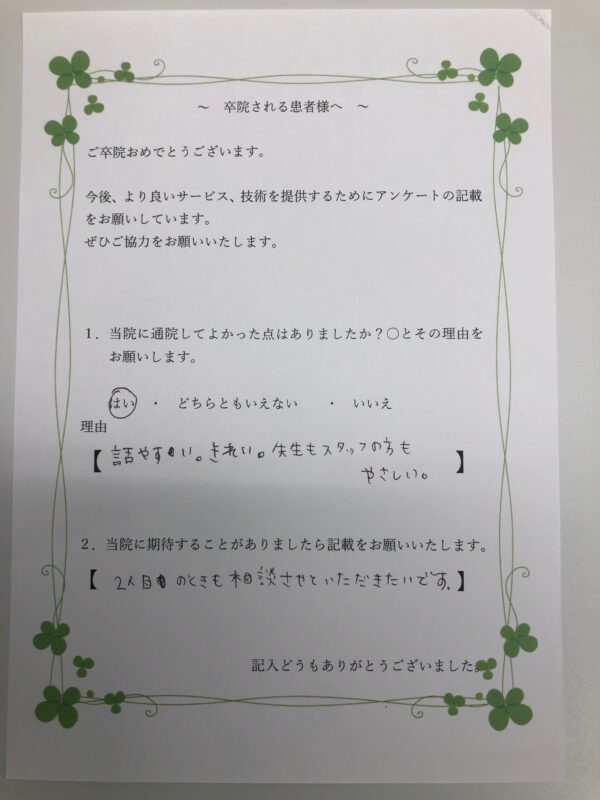 ～　卒院される患者様へ　～
ご卒院おめでとうございます。
今後、より良いサービス、技術を提供するためにアンケートの記載
をお願いしています。
ぜひご協力をお願いいたします。
１．当院に通院してよかった点はありましたか？〇とその理由を
お願いします。
はい　・　どちらともいえない　　・　いいえ
理由
【 話やすい。きれい。先生もスタッフの方も
やさしい。 】
２．当院に期待することがありましたら記載をお願いいたします。
【 2人目のときも相談させていただきたいです。】
記入どうもありがとうございました。